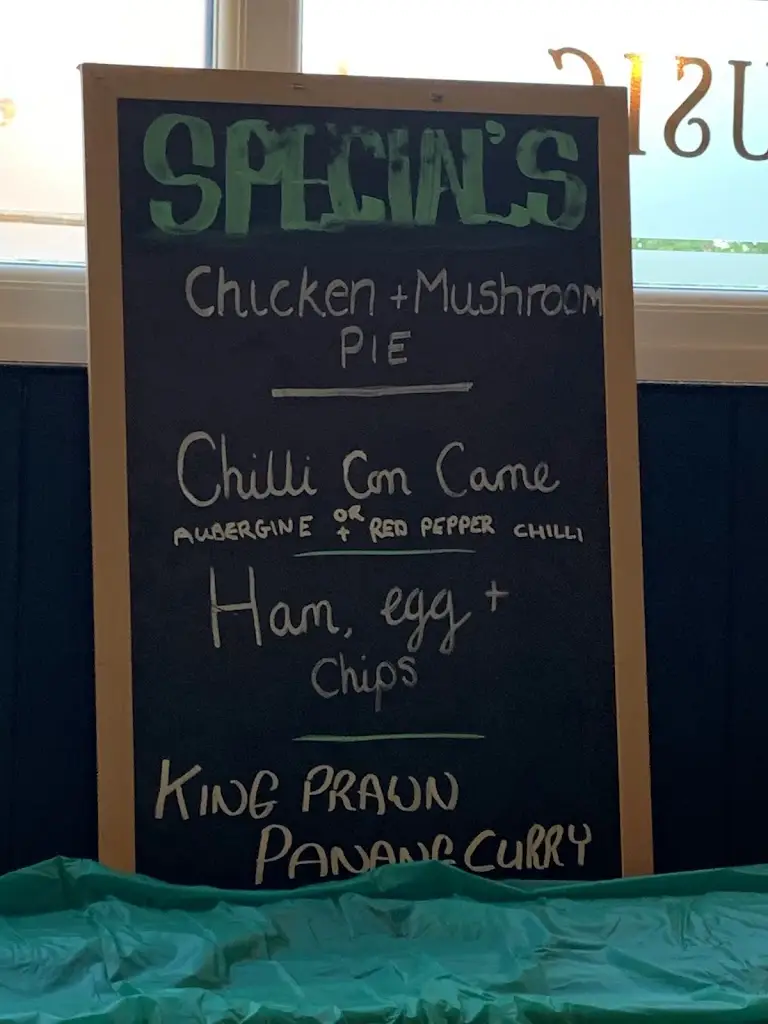 SPECIAL'S
Chicken + Mushroom
PIE
Chilli Con Carne
AUBERGINE OR + RED PEPPER CHILLI
Ham, egg +
Chips
KING PRAWN
PANANG CURRY